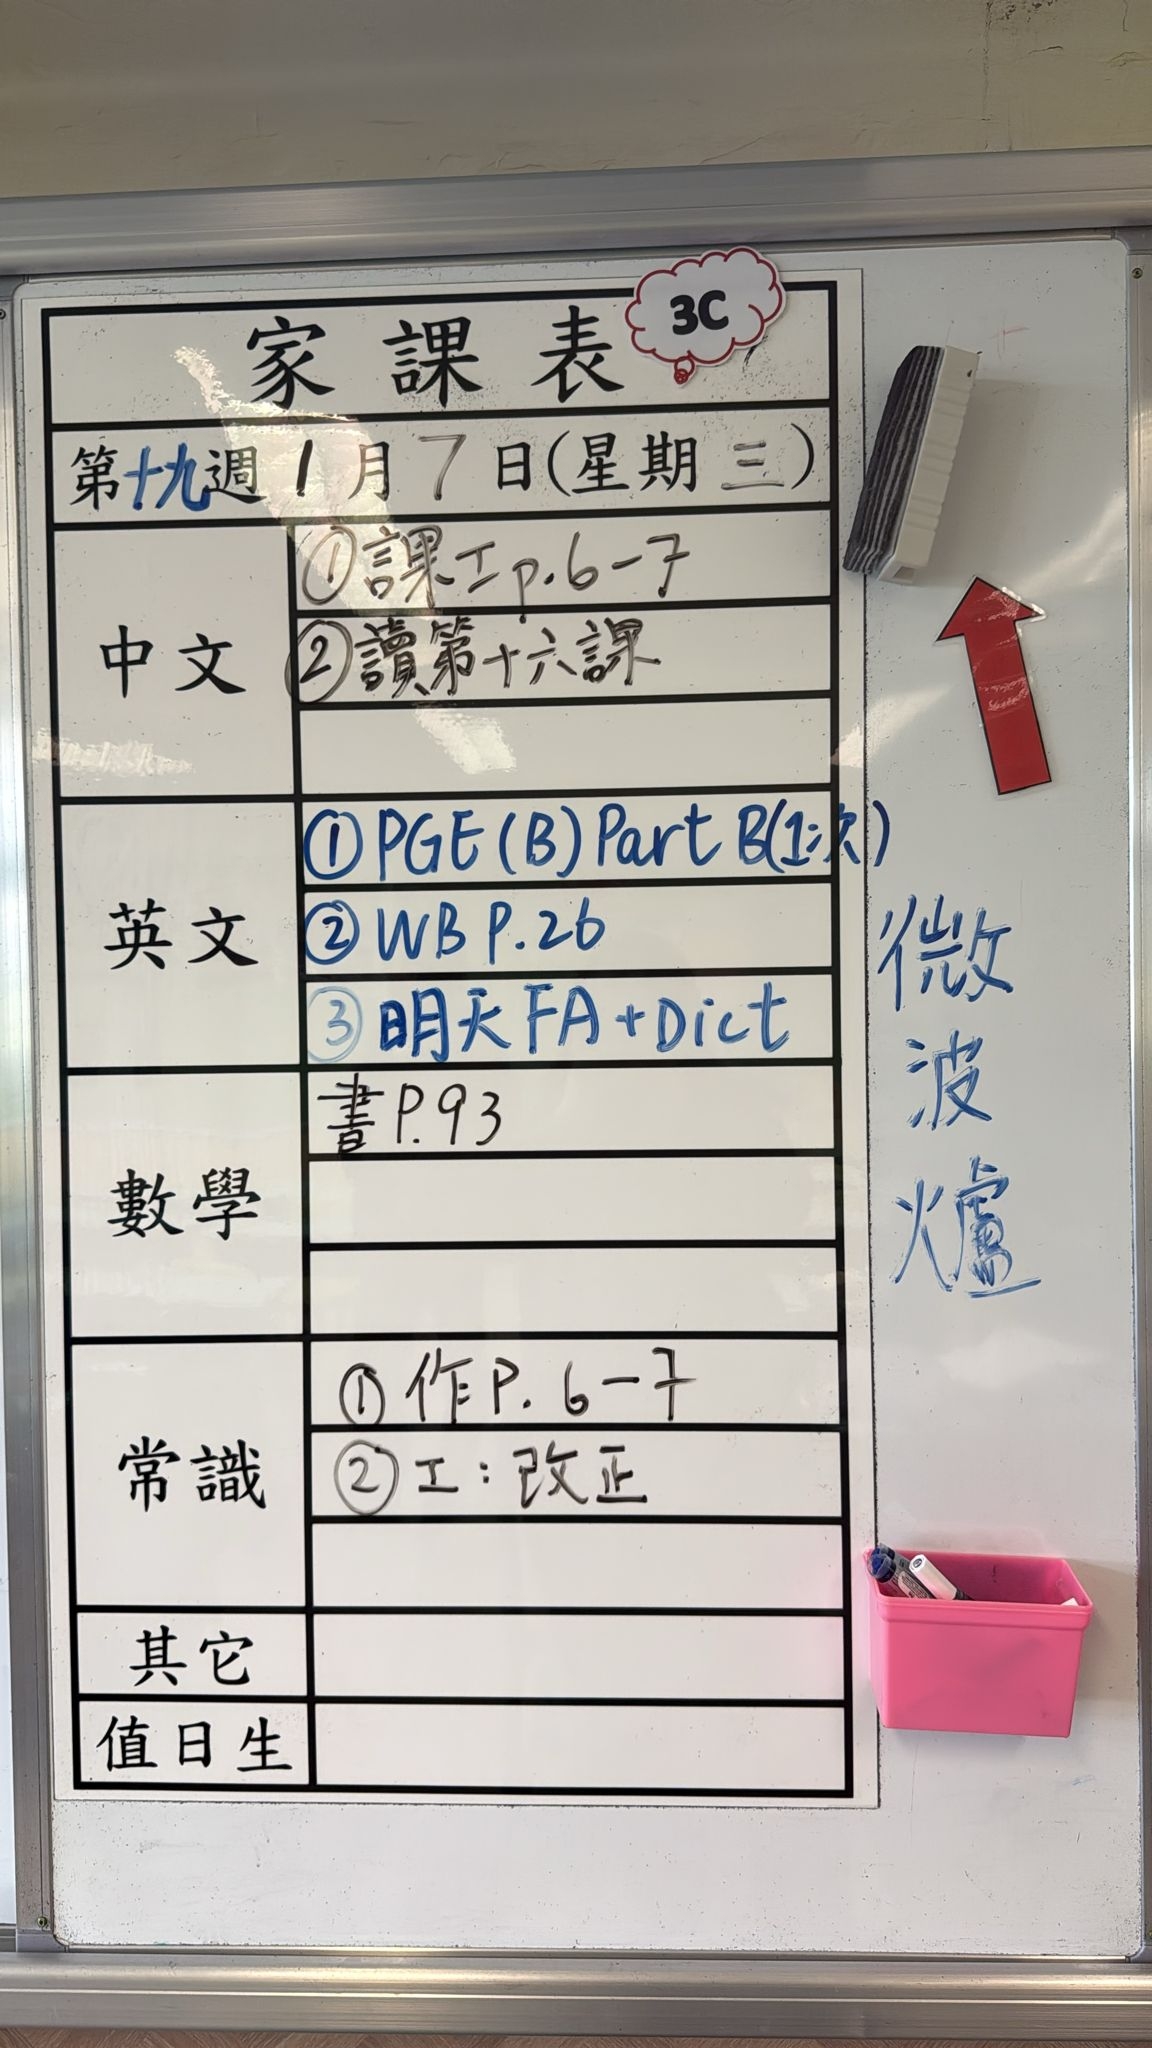 家課表
3C
第十九週 1月7日(星期三)
中文
①課工p.6-7
②讀第十六課
英文
①PGE(B) Part B(1次)
②WB P.26
③明天FA+Dict
數學
書P.93
常識
①作P.6-7
②工:改正
其它
值日生
微
波
爐